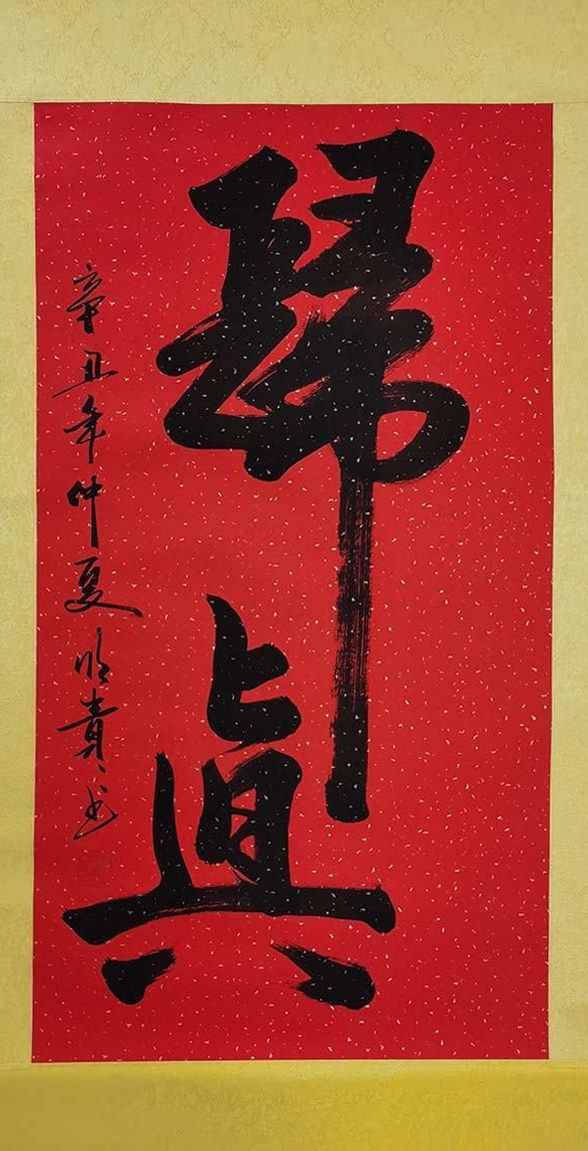 歸眞
辛丑年仲夏明書